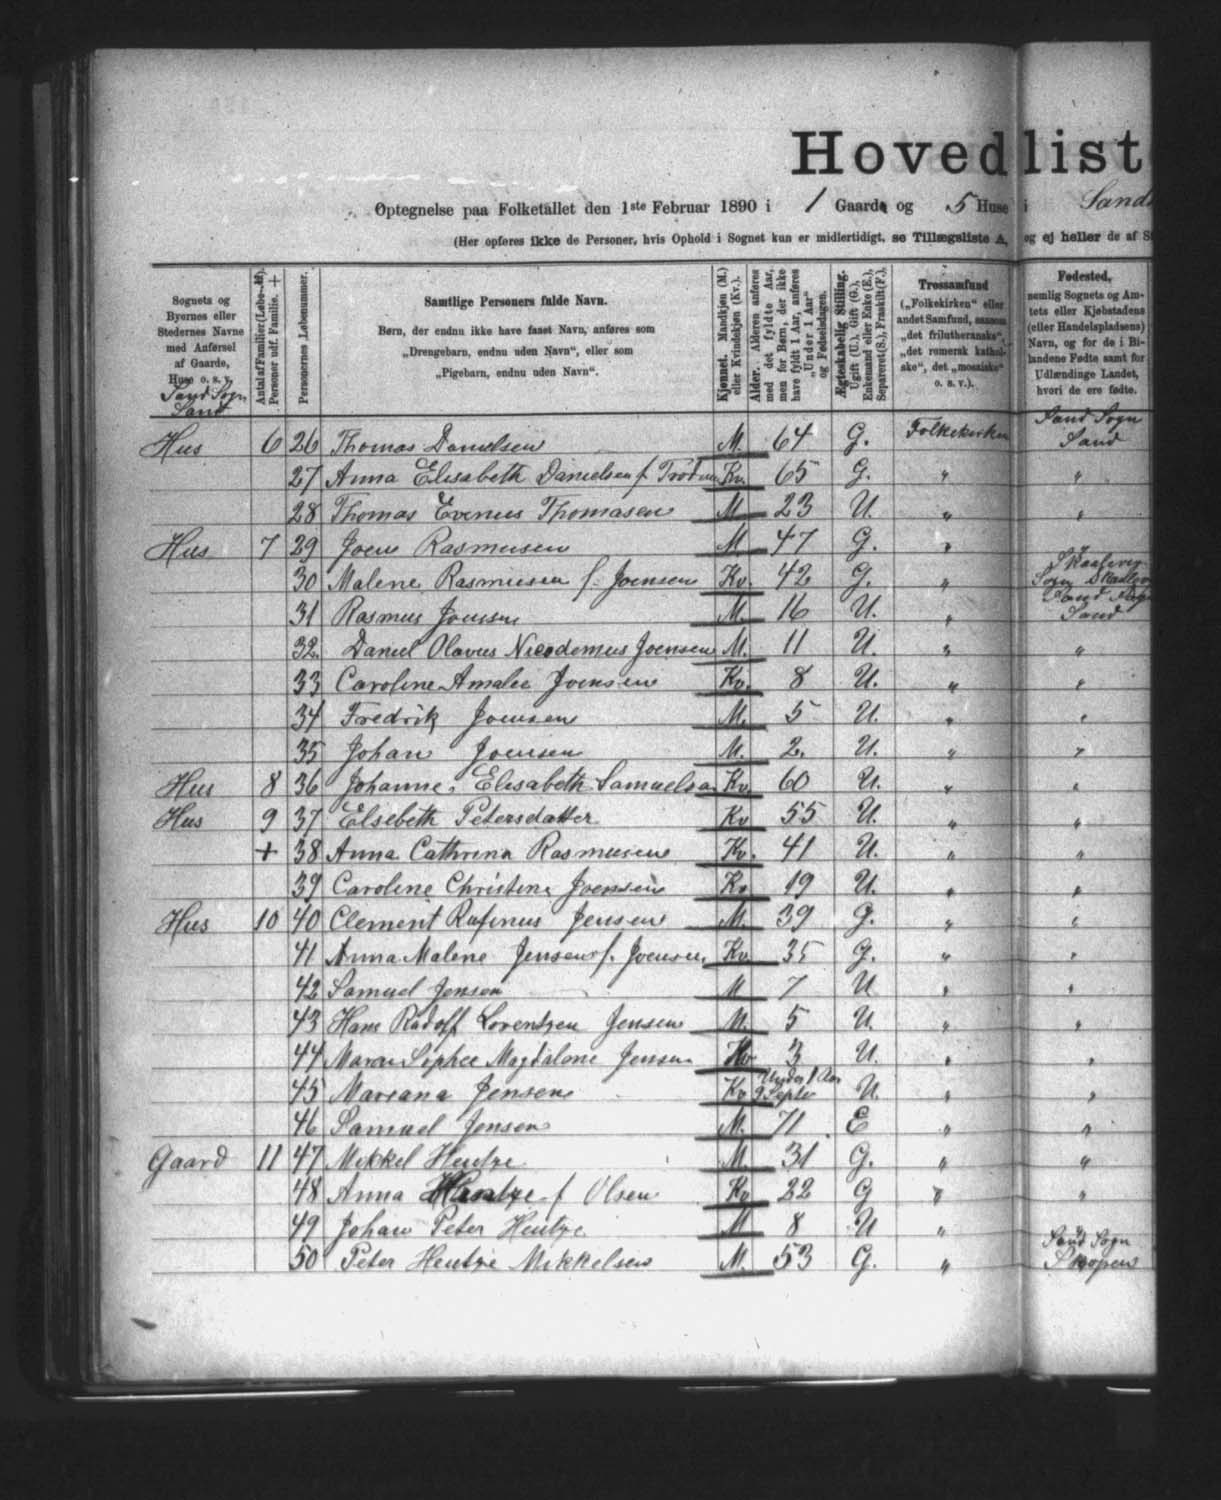 Hovedlist
Optegnelse paa Folketallet den 1ste Februar 1890 i 1 Gaarde og 5 Huse i Sands
(Her opføres ikke de Personer, hvis Ophold i Sognet kun er midlertidigt, se Tillægsliste A, og ej heller de af S
Sognets og Byernes eller Stedernes Navne med Anførsel af Gaarde, Huse o. s. v.
Sand Sogn
Sand
Antal af Familier (Løbe-№). Personer udf. Familie. +
Personernes Løbenummer.
Samtlige Personers fulde Navn.
Børn, der endnu ikke have faaet Navn, anføres som
„Drengebarn, endnu uden Navn“, eller som
„Pigebarn, endnu uden Navn“.
Kjønnet. Mandkjøn (M.) eller Kvindekjøn (Kv.).
Alder. Alderen anføres med det fyldte Aar, men for Børn, der ikke have fyldt 1 Aar, anføres „Under 1 Aar“ og Fødselsdagen.
Ægteskabelig Stilling. Ugift (U.), Gift (G.), Enkemand eller Enke (E.), Separeret (S.), Fraskilt (F.).
Trossamfund („Folkekirken“ eller andet Samfund, saasom „det frilutheranske“, „det romersk katholske“, det „mosaiske“ o. s. v.).
Fødested, nemlig Sognets og Amtets eller Kjøbstadens (eller Handelspladsens) Navn, og for de i Bilandene Fødte samt for Udlændinge Landet, hvori de ere fødte.
Hus 6 26 Thomas Danielsen M. 64 G. Folkekirken Sand Sogn Sand
27 Anna Elisabeth Danielsen f. Kv. 65 G. " "
28 Thomas Evenius Thomasen M. 23 U. " "
Hus 7 29 Joen Rasmusen M. 47 G. " "
30 Malene Rasmusen f. Joensen Kv. 42 G. " Sogn
31 Rasmus Joensen M. 16 U. " Sand Sogn Sand
32 Daniel Olavus Nicodemus Joensen M. 11 U. " "
33 Caroline Amalie Joensen Kv. 8 U. " "
34 Fredrik Joensen M. 5 U. " "
35 Johan Joensen M. 2 U. " "
Hus 8 36 Johanne Elisabeth Kv. 60 U. " "
Hus 9 37 Elsebeth Petersdatter Kv 55 U. " "
+ 38 Anna Cathrina Rasmusen Kv. 41 U. " "
39 Caroline Christina Joensen Kv 19 U. " "
Hus 10 40 Clement Rufinus Jensen M. 39 G. " "
41 Anna Malene Jensen f. Joensen Kv. 35 G. " "
42 Samuel Jensen M 7 U " "
43 Hans Rudolf Lorentzen Jensen M. 5 U. " "
44 Maren Sophie Magdalene Jensen Kv 3 U. " "
45 Mariana Jensen Kv Under 1 Aar 9 Septb U. " "
46 Samuel Jensen M. 71 E " "
Gaard 11 47 Mikkel Hentze M. 31 G. " "
48 Anna Hentze f. Olsen Kv 22 G " "
49 Johan Peter Hentze M 8 U " "
50 Peter Hentze Mikkelsen M. 53 G. " Sand Sogn Skopen